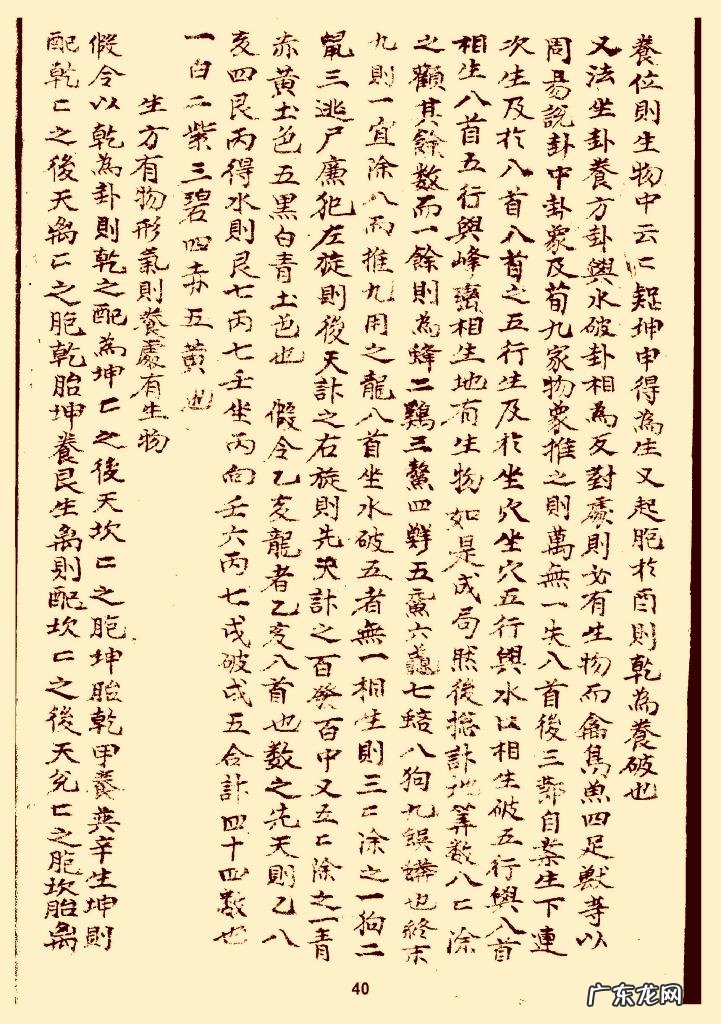 養位則生物中云匚疑坤申得為生又起胞於酉則乾為養破也
又法坐卦養方卦與水破卦相為反對處則必有生物而禽鳥魚四足獸等以
周易說卦中卦象及荀九家物象推之則萬無一失八首後三節自來生下連
次生及於八首八首之五行生及於坐穴坐穴五行與水以相生破五行與八首
相生八首五行與峰巒相生地有生物如是成局然後捴計地筭数八匚涂
之顧其餘数而一餘則為蜂二鷄三鰲四蟬五黿六龜七蛤八狗九也終末
九則一宜除八而推九用之龍八首坐水破五者無一相生則三匚涂之一狗二
鼠三逃尸廉犯左旋則後天計之右旋則先天計之百發百中又五匚除之一青
赤黃土色五黑白青土色也 假令乙亥龍者乙亥八首也数之先天則乙八
亥四艮丙得水則艮七丙七壬坐丙向壬六丙七戌破戌五合計四十四数也
一白二紫三碧四赤五黃也
生方有物形氣則養處有生物
假令以乾為卦則乾之配為坤匚之後天坎匚之胞坤胎乾甲養巽辛生坤則
配乾匚之後天离匚之胞乾胎坤養艮生离則配坎匚之後天兌匚之胞坎胎离
40
广东龙网